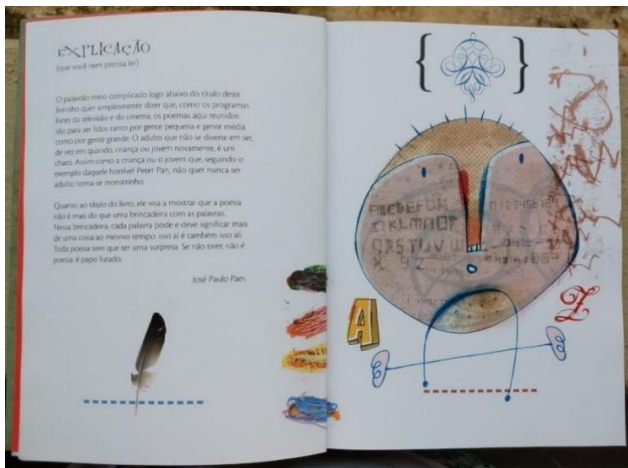 EXPLICAÇÃO
(que você nem precisa ler)
O palavrão meio complicado logo abaixo do título deste
livrinho quer simplesmente dizer que, como os programas
livres da televisão e do cinema, os poemas aqui reunidos
são para ser lidos tanto por gente pequena e gente média
como por gente grande. O adulto que não se diverte em ser,
de vez em quando, criança ou jovem novamente, é um
chato. Assim como a criança ou o jovem que, seguindo o
exemplo daquele horrível Peter Pan, não quer nunca ser
adulto torna-se monstrinho.
Quanto ao título do livro, ele visa a mostrar que a poesia
não é mais do que uma brincadeira com as palavras.
Nessa brincadeira, cada palavra pode e deve significar mais
de uma coisa ao mesmo tempo: isso aí é também isso ali.
Toda poesia tem que ter uma surpresa. Se não tiver, não é
poesia: é papo furado.
José Paulo Paes
A
Z